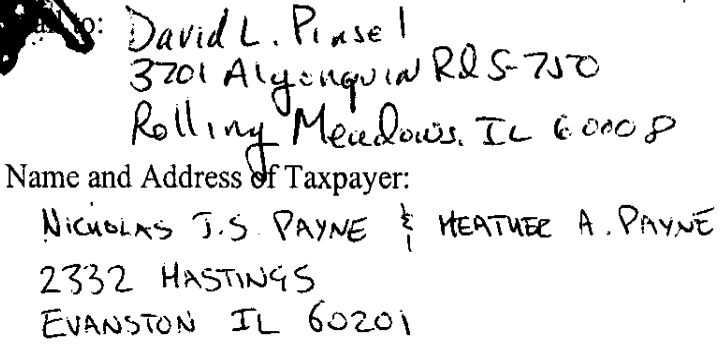 to: David L. Pinsel
3701 Algonquin Rd S-750
Rolling Meadows, IL 60008
Name and Address of Taxpayer:
NICHOLAS J.S. PAYNE & HEATHER A. PAYNE
2332 HASTINGS
EVANSTON IL 60201